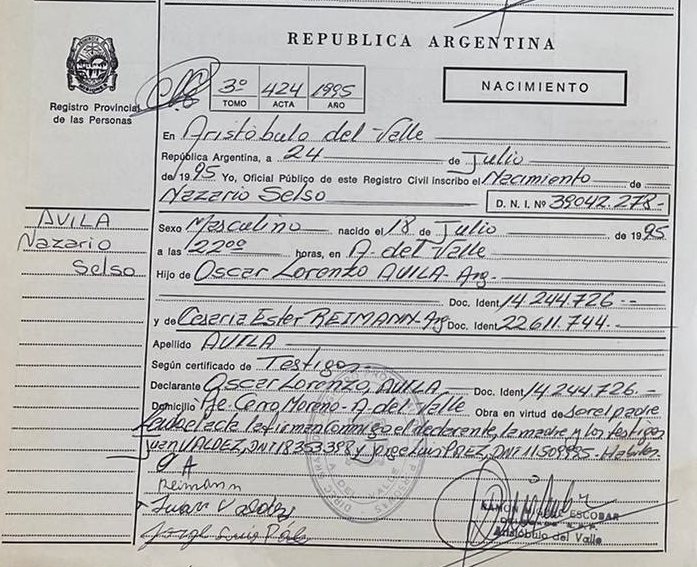 REPUBLICA ARGENTINA
Registro Provincial
de las Personas
3º 424 1995
TOMO ACTA AÑO
NACIMIENTO
En Aristóbulo del Valle
República Argentina, a 24 de Julio
de 1995 Yo, Oficial Público de este Registro Civil inscribo el Nacimiento de
Nazario Selso D. N. I. Nº 39042.278-
AVILA
Nazario
Selso
Sexo Masculino nacido el 18 de Julio de 1995
a las 22⁰⁰ horas, en A. del Valle
Hijo de Oscar Lorenzo AVILA- Arg.-
Doc. Ident. 14.244.726.--
y de Ceseria Ester REIMANN-Arg Doc. Ident. 22611.744.--
Apellido AVILA
Según certificado de Testigos
Declarante Oscar Lorenzo, AVILA Doc. Ident. 14.244.726.-
Domicilio Pje Cerro, Moreno- A. del Valle Obra en virtud de ser el padre
Leida el acta la firman conmigo el declarante, la madre y los testigos
Juan VALDEZ, DNI 18353398 y Jorge Luis PAEZ, DNI 11509985. Habiles.
O A
Reimann
Juan Valdez
Jorge Luis Páez
RAMON MIGUEL ESCOBAR
Aristóbulo del Valle